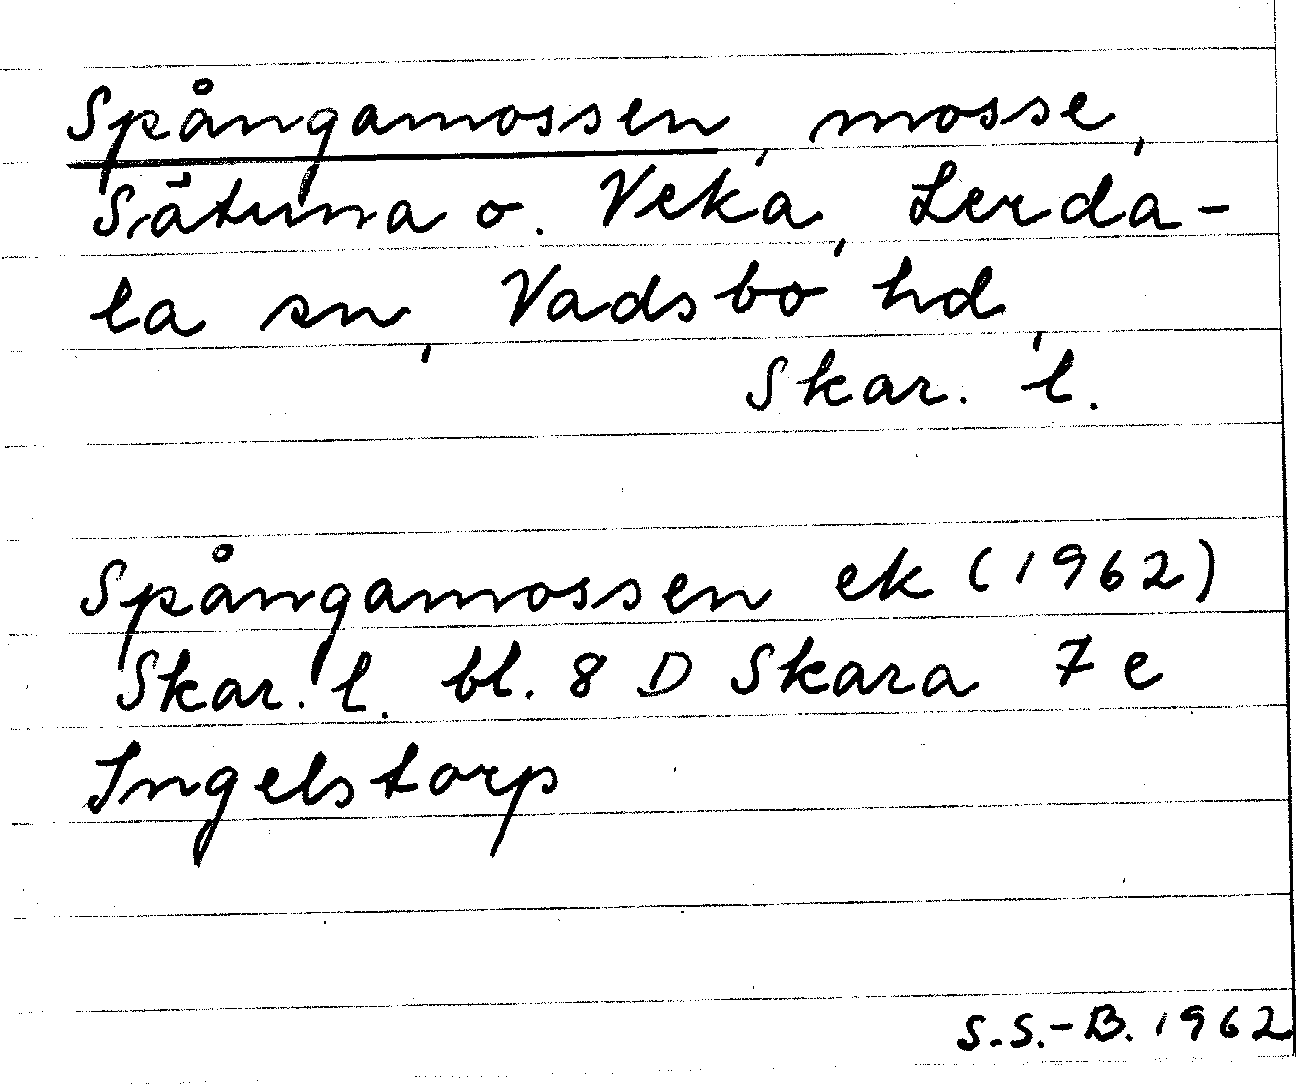 Spångamossen, mosse,
Sätuna o. Veka, Lerda-
la sn, Vadsbo hd,
Skar. l.
Spångamossen ek (1962)
Skar. l. bl. 8 D Skara 7 e
Ingelstorp
S.S.-B. 1962